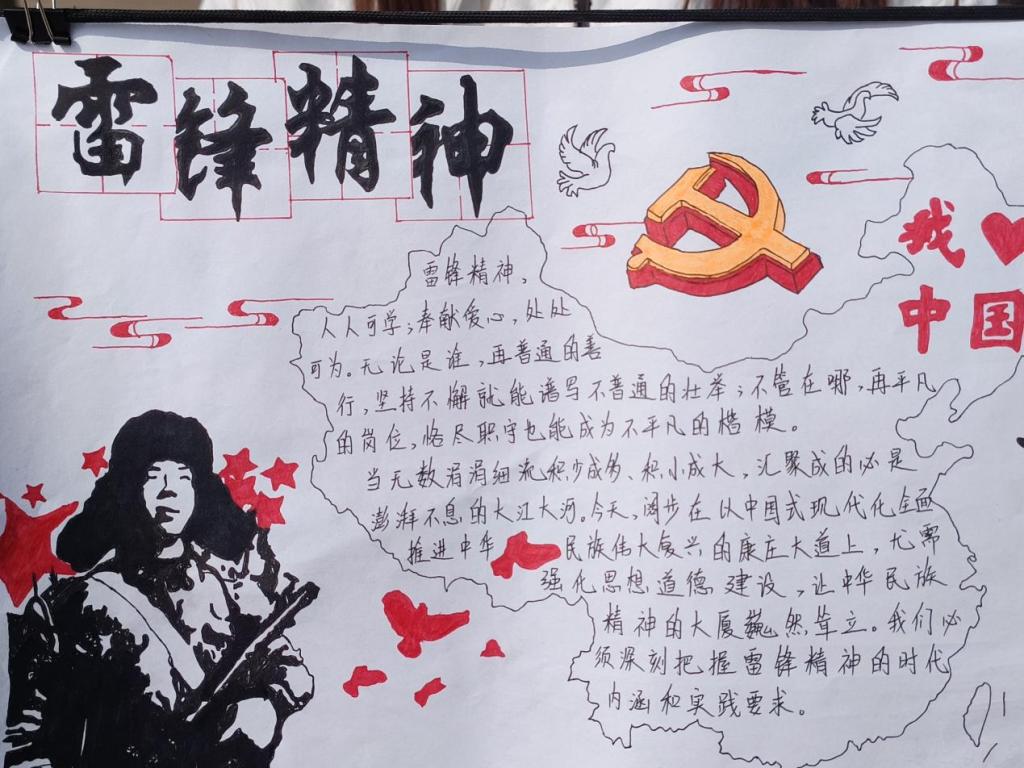 雷锋精神
我
中国
雷锋精神、
人人可学；奉献爱心，处处
可为。无论是谁，再普通的善
行，坚持不懈就能谱写不普通的壮举；不管在哪，再平凡
的岗位，恪尽职守也能成为不平凡的楷模。
当无数涓涓细流积少成多、积小成大，汇聚成的必是
澎湃不息的大江大河。今天，阔步在以中国式现代化全面
推进中华民族伟大复兴的康庄大道上，尤需
强化思想道德建设，让中华民族
精神的大厦巍然耸立。我们必
须深刻把握雷锋精神的时代
内涵和实践要求。